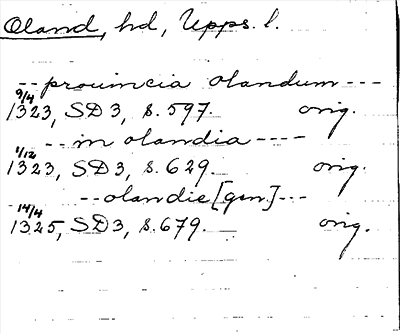 Oland, hd, Upps. l.
-- prouincia olandum ---
9/4
1323, SD 3, s. 597. orig.
-- in olandia ----
1/12
1323, SD 3, s. 629. orig.
-- olandie [gen] ---
14/4
1325, SD 3, s. 679. orig.